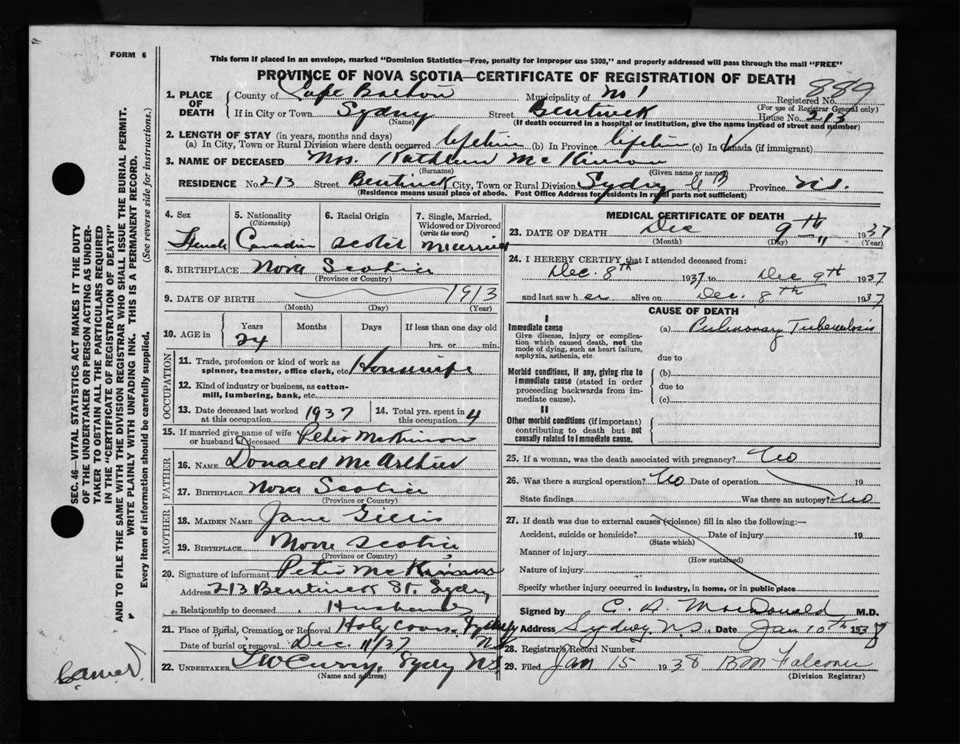 FORM 6
This form if placed in an envelope, marked "Dominion Statistics—Free, penalty for improper use $300," and properly addressed will pass through the mail "FREE"
PROVINCE OF NOVA SCOTIA—CERTIFICATE OF REGISTRATION OF DEATH
889
1. PLACE OF DEATH
County of Cape Breton Municipality of No 1 Registered No.
(For use of Registrar General only)
If in City or Town Sydny Street Bentinck House No. 213
(Name) (If death occurred in a hospital or institution, give the name instead of street and number)
2. LENGTH OF STAY (in years, months and days)
(a) In City, Town or Rural Division where death occurred lifetime (b) In Province lifetime (c) In Canada (if immigrant)
3. NAME OF DECEASED Mrs. Kathleen McKinnon
(Surname) (Given name or names)
RESIDENCE No. 213 Street Bentinck City, Town or Rural Division Sydny C B Province N.S.
(Residence means usual place of abode. Post Office Address for residents in rural parts not sufficient)
4. Sex
Female
5. Nationality
(Citizenship)
Canadian
6. Racial Origin
Scotch
7. Single, Married, Widowed or Divorced
(write the word)
Married
8. BIRTHPLACE Nova Scotia
(Province or Country)
9. DATE OF BIRTH 1913
(Month) (Day) (Year)
10. AGE in Years Months Days If less than one day old
24 hrs. or min.
OCCUPATION
11. Trade, profession or kind of work as spinner, teamster, office clerk, etc. Housewife
12. Kind of industry or business, as cotton-mill, lumbering, bank, etc.
13. Date deceased last worked at this occupation 1937
14. Total yrs. spent in this occupation 4
15. If married give name of wife or husband of deceased Peter McKinnon
FATHER
16. NAME Donald McArthur
17. BIRTHPLACE Nova Scotia
(Province or Country)
MOTHER
18. MAIDEN NAME Jane Gillis
19. BIRTHPLACE Nova Scotia
(Province or Country)
20. Signature of informant Peter McKinnon
Address 213 Bentinck St. Sydny
Relationship to deceased Husband
21. Place of Burial, Cremation or Removal Holy Cross, Sydney
Date of burial or removal Dec 11/37 NS
22. UNDERTAKER T W Curry, Sydny NS
(Name and address)
MEDICAL CERTIFICATE OF DEATH
23. DATE OF DEATH Dec 9th 1937
(Month) (Day) (Year)
24. I HEREBY CERTIFY that I attended deceased from:
Dec. 8th 1937 to Dec 9th 1937
and last saw her alive on Dec. 8th 1937
CAUSE OF DEATH
I
Immediate cause
Give disease, injury or complication which caused death, not the mode of dying, such as heart failure, asphyxia, asthenia, etc
(a) Pulmonary Tuberculosis
due to
Morbid conditions, if any, giving rise to immediate cause (stated in order proceeding backwards from immediate cause).
(b)
due to
(c)
II
Other morbid conditions (if important) contributing to death but not causally related to immediate cause.
25. If a woman, was the death associated with pregnancy? No
26. Was there a surgical operation? No Date of operation 19
State findings Was there an autopsy? No
27. If death was due to external causes (violence) fill in also the following:—
Accident, suicide or homicide? Date of injury 19
(State which)
Manner of injury
(How sustained)
Nature of injury
Specify whether injury occurred in industry, in home, or in public place
Signed by C. A. MacDonald M.D.
Address Sydney N.S. Date Jan 10th 1938
28. Registrar's Record Number
29. Filed Jan 15 1938 B M Falconer
(Division Registrar)
SEC. 46—VITAL STATISTICS ACT MAKES IT THE DUTY
OF THE UNDERTAKER OR PERSON ACTING AS UNDER-
TAKER TO OBTAIN ALL THE PARTICULARS REQUIRED
IN THE "CERTIFICATE OF REGISTRATION OF DEATH"
AND TO FILE THE SAME WITH THE DIVISION REGISTRAR WHO SHALL ISSUE THE BURIAL PERMIT.
WRITE PLAINLY WITH UNFADING INK. THIS IS A PERMANENT RECORD.
Every item of information should be carefully supplied. (See reverse side for instructions.)